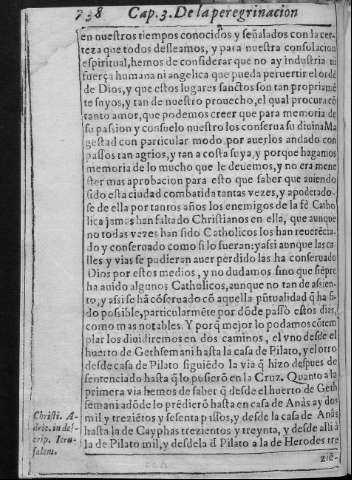 738 Cap. 3. De la peregrinacion
en nuestros tiempos conocidos y señalados con la cer-
teza que todos desseamos, y para nuestra consolacion
espiritual, hemos de considerar que no ay industria ni
fuerça humana ni angelica que pueda peruertir el ordē
de Dios, y que estos lugares sanctos son tan propriamē
te suyos, y tan de nuestro prouecho, el qual procura cō
tanto amor, que podemos creer que para memoria de
su passion y consuelo nuestro los conserua su diuina Ma
gestad con particular modo, por auerlos andado con
passos tan agrios, y tan a costa suya, y porque hagamos
memoria de lo mucho que le deuemos, y no era mene
ster mas aprobacion para esto que saber que auiendo
sido esta ciudad combatida tantas vezes, y apoderado-
se de ella por tantos años los enemigos de la fê Catho
lica jamas han faltado Christianos en ella, que aunque
no todas vezes han sido Catholicos los han reuerēcia-
do y conseruado como si lo fueran: y assi aunque las ca-
lles y vias se pudieran auer perdido las ha conseruado
Dios por estos medios, y no dudamos sino que siēpre
ha auido algunos Catholicos, aunque no tan de assien-
to, y assi se hā cōseruado cō aquella pūtualidad q̄ ha si-
do possible, particularmēte por dōde passò estos dias,
como mas notables. Y porq̄ mejor lo podamos cōtem
plar los diuidiremos en dos caminos, el vno desde el
huerto de Gethsemani hasta la casa de Pilato, y el otro
desde casa de Pilato siguiēdo la via q̄ hizo despues de
sentenciado hasta q̄ lo pusierō en la Cruz. Quanto a la
primera via hemos de saber q̄ desde el huerto de Geth
semani adōde lo prēdierō hasta en casa de Anàs ay dos
mil y treziētos y sesenta passos, y desde la casa de Anàs
hasta la de Cayphas trezientos y treynta, y desde alli à
la de Pilato mil, y desde la d̄ Pilato a la de Herodes tre
zie-
Christi. A-
dric. in des-
crip. Ieru-
salem.